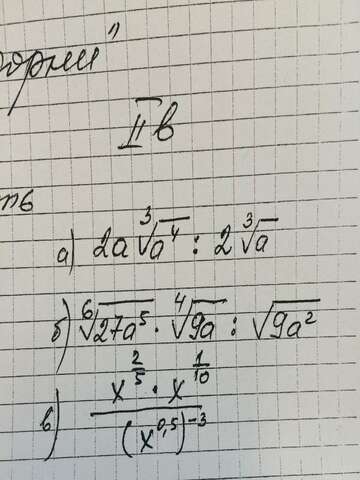 II в
а) 2a ∛a⁴ : 2 ∛a
б) ⁶√27a⁵ · ⁴√9a : √9a²
в) (x^(2/5) · x^(1/10)) / (x^0,5)^-3